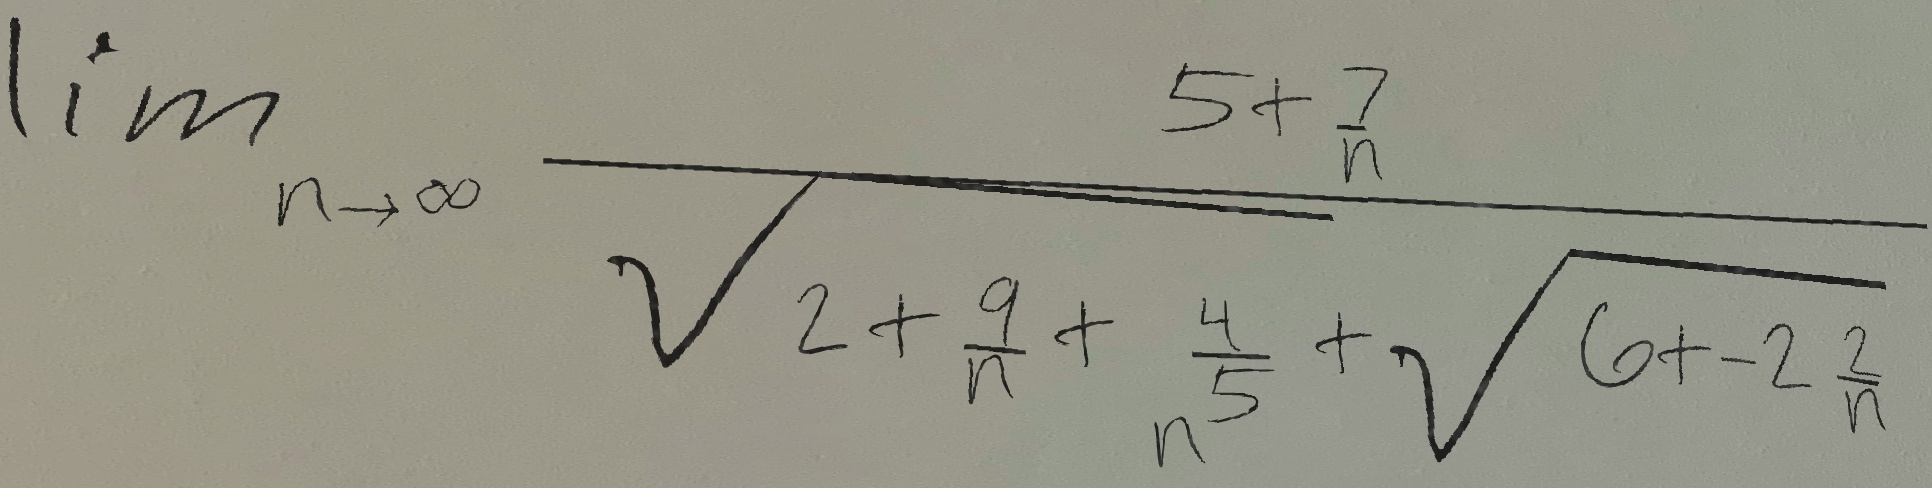 \lim_{n \to \infty} \frac{5 + \frac{7}{n}}{\sqrt{2 + \frac{9}{n} + \frac{4}{n^5}} + \sqrt{6 + -2\frac{2}{n}}}